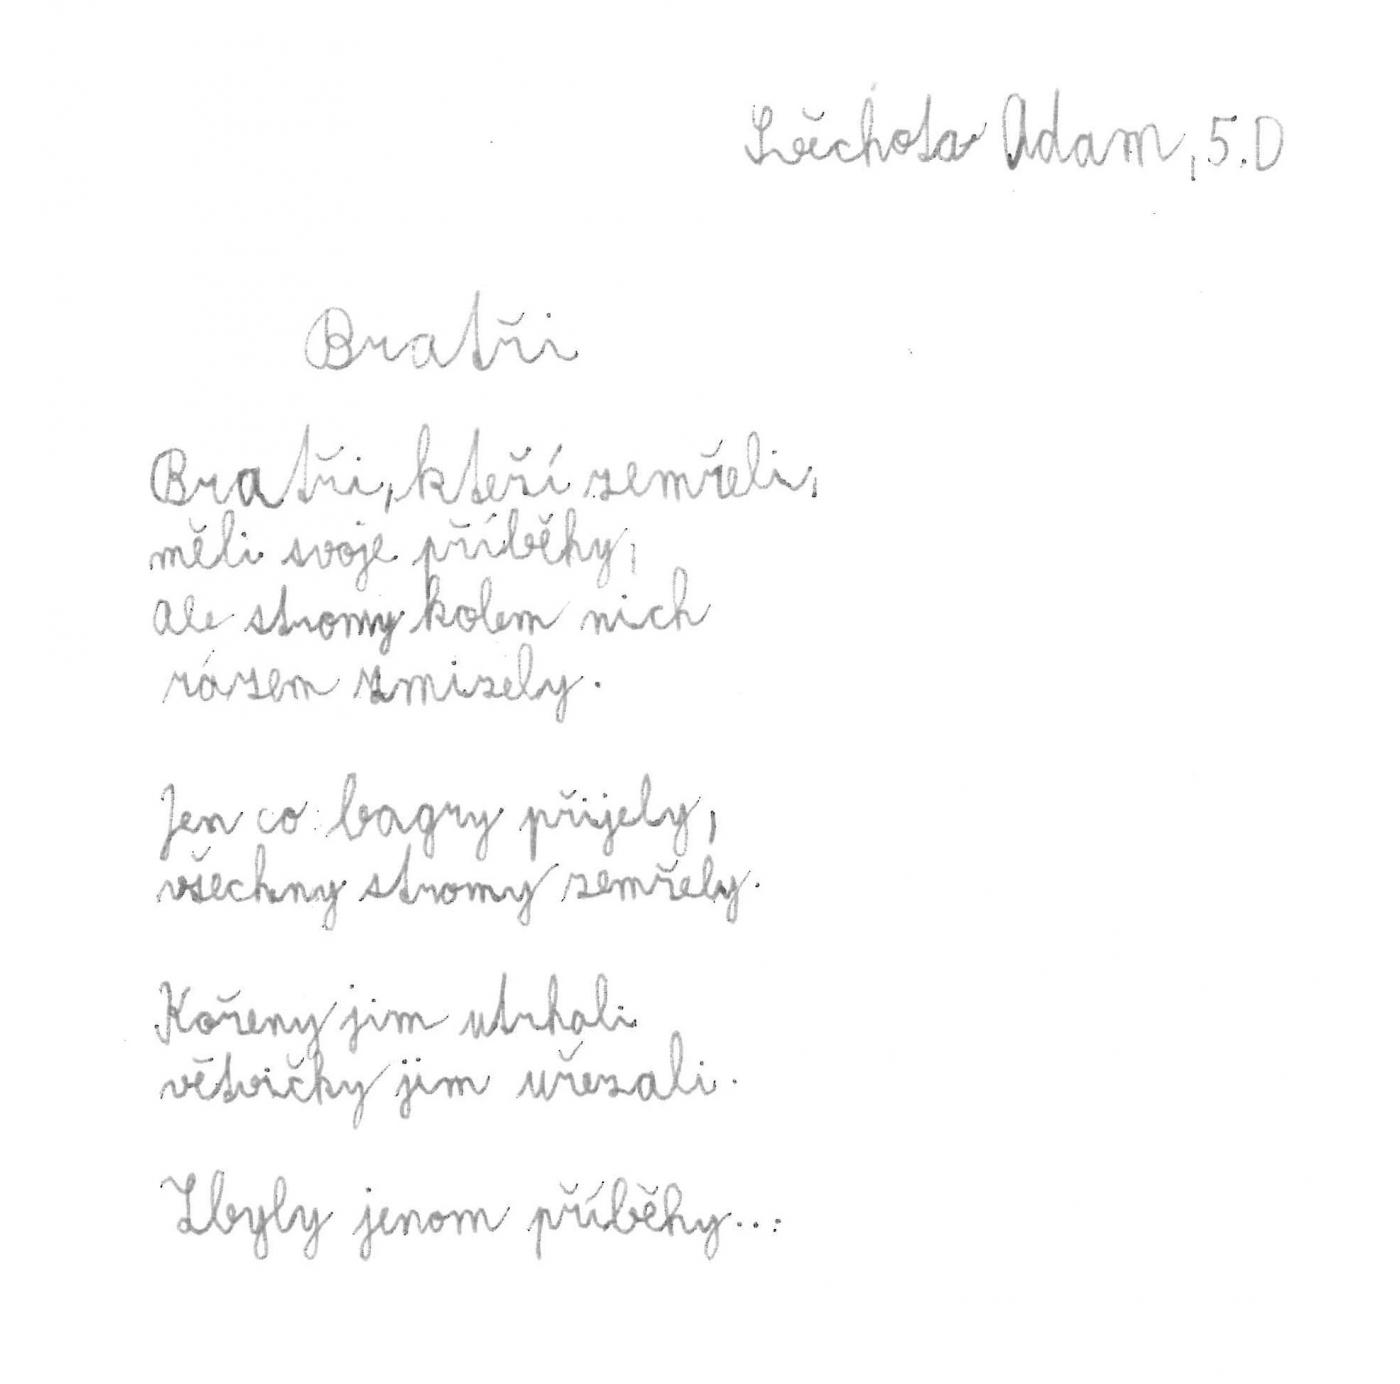 Švěchota Adam, 5.D
Bratři
Bratři, kteří zemřeli,
měli svoje příběhy,
Ale stromy kolem nich
rázem zmizely.
Jen co bagry přijely,
všechny stromy zemřely.
Kořeny jim utrhali
větvičky jim uřezali.
Zbyly jenom příběhy...